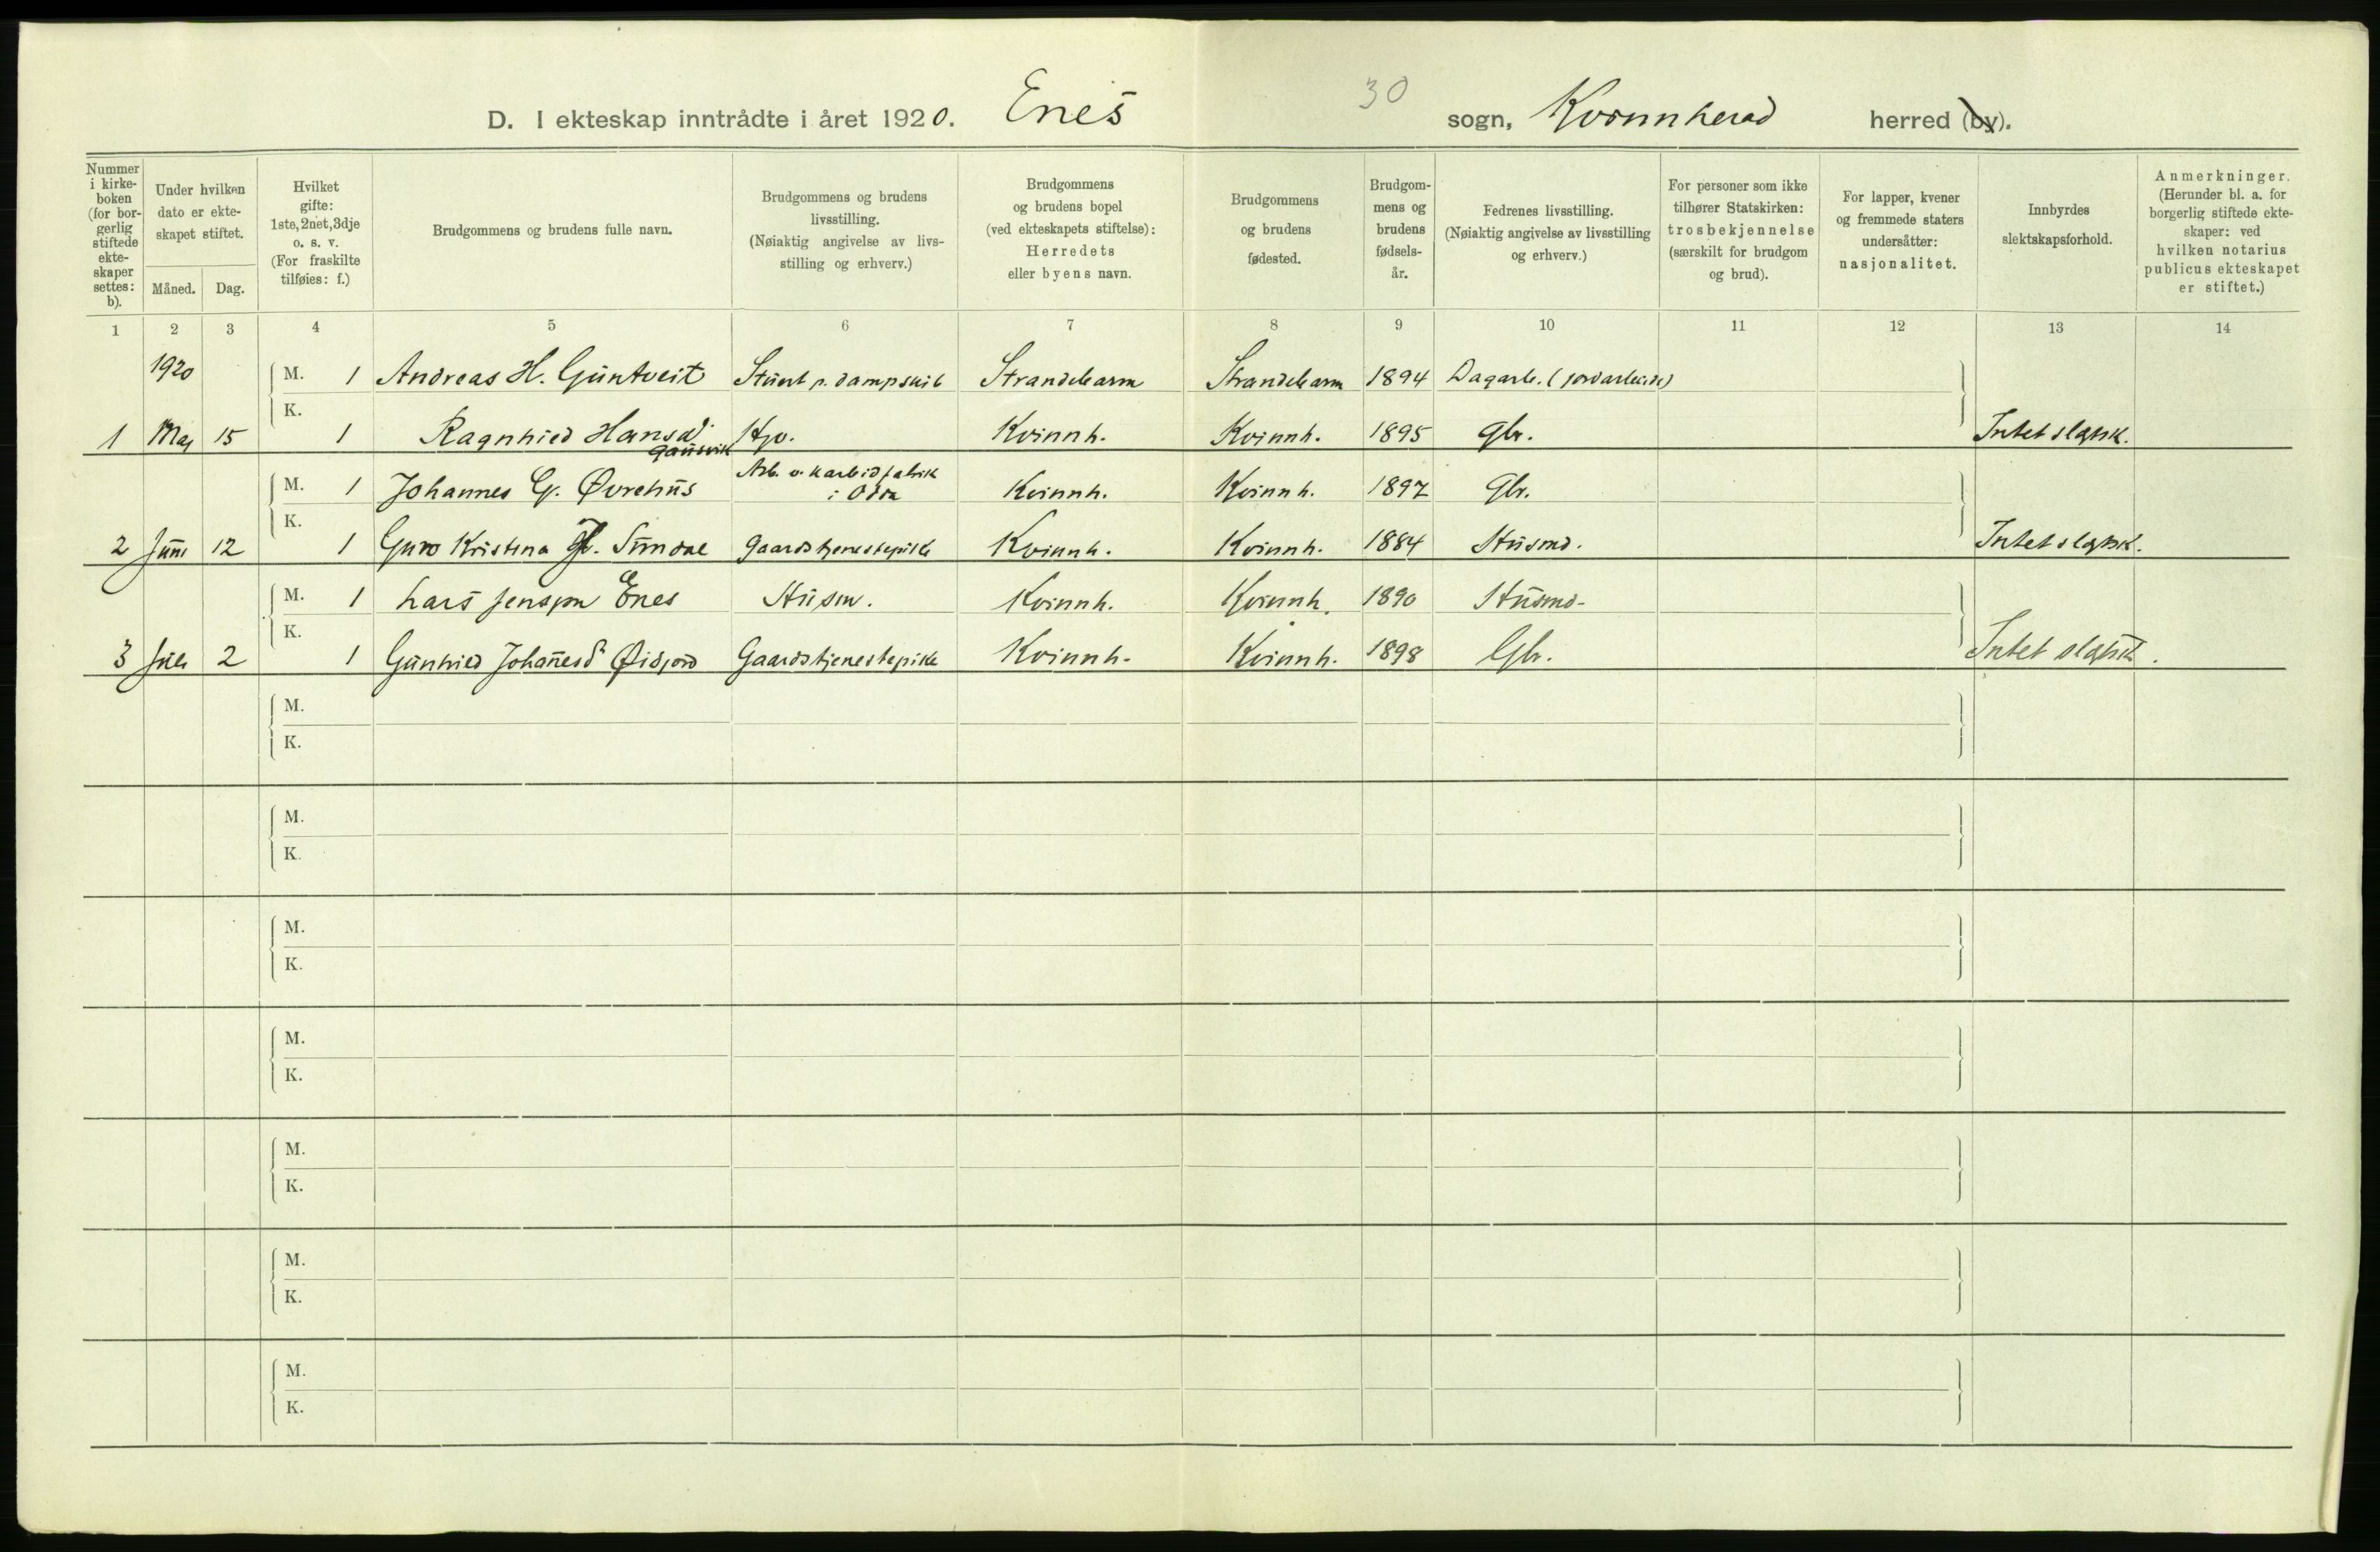 30
D. I ekteskap inntrådte i året 1920. Enes sogn, Kvinnherad herred (by).
Nummer i kirke- boken (for bor- gerlig stiftede ekte- skaper settes: b).
Under hvilken dato er ekte- skapet stiftet.
Måned. Dag.
Hvilket gifte: 1ste, 2net, 3dje o. s. v. (For fraskilte tilføies: f.)
Brudgommens og brudens fulle navn.
Brudgommens og brudens livsstilling. (Nøiaktig angivelse av livs- stilling og erhverv.)
Brudgommens og brudens bopel (ved ekteskapets stiftelse): Herredets eller byens navn.
Brudgommens og brudens fødested.
Brudgom- mens og brudens fødsels- år.
Fedrenes livsstilling. (Nøiaktig angivelse av livsstilling og erhverv.)
For personer som ikke tilhører Statskirken: trosbekjennelse (særskilt for brudgom og brud).
For lapper, kvener og fremmede staters undersåtter: nasjonalitet.
Innbyrdes slektskapsforhold.
Anmerkninger. (Herunder bl. a. for borgerlig stiftede ekte- skaper: ved hvilken notarius publicus ekteskapet er stiftet.)
1 2 3 4 5 6 7 8 9 10 11 12 13 14
1920 M. 1 Andreas H. Guntveit Stuert p. dampskib Strandebarm Strandebarm 1894 Dagarb. (jordarbeide)
1 Maj 15 K. 1 Ragnhild Hansd. Gausvik Hp. Kvinnh. Kvinnh. 1895 Gbr. Intet slgtsk.
M. 1 Johannes G. Øvrehus Arb. v. karbidfabrik i Odda Kvinnh. Kvinnh. 1897 Gbr.
2 Juni 12 K. 1 Guro Kristina Sundal Gaardstjenestepike Kvinnh. Kvinnh. 1884 Husmd. Intet slgtsk.
M. 1 Lars Jenson Enes Husm. Kvinnh. Kvinnh. 1890 Husmd.
3 Juli 2 K. 1 Gunhild Johanesd Øidfjord Gaardstjenestepike Kvinnh. Kvinnh. 1898 Gbr. Intet slgtsk.
M.
K.
M.
K.
M.
K.
M.
K.
M.
K.
M.
K.
M.
K.